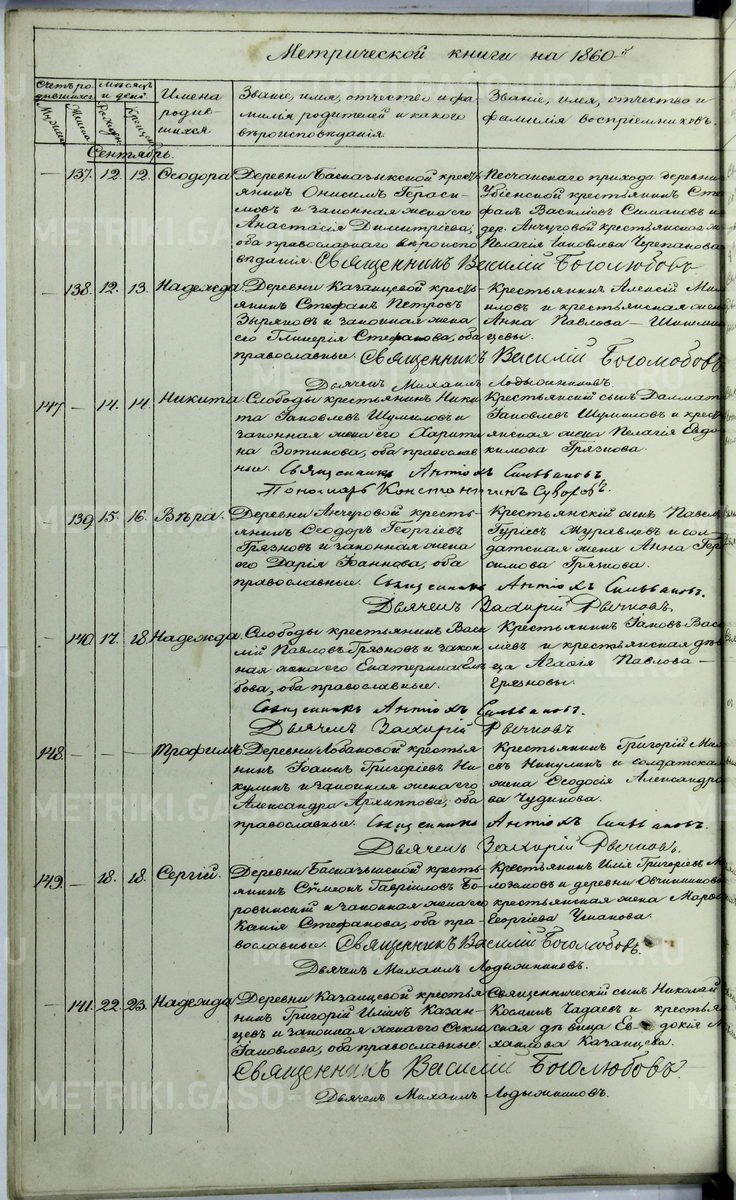 Метрической книги на 1860й
Счетъ родившихся
Мужеска
Женска
Мѣсяцъ и день
Рожденія
Крещенія
Имена родившихся
Званіе, имя, отчество и фамилія родителей и какого вѣроисповѣданія.
Званіе, имя, отчество и фамилія воспріемниковъ.
Сентябрь.
— 137. 12. 12. Ѳеодора.
Деревни Басказыкской крестьянинъ
Онисимъ Герасимовъ
и законная жена его
Анастасія Димитріева,
оба православнаго вѣроисповѣданія.
Песчанскаго прихода деревни
крестьянинъ Стефанъ
Василіевъ Симановъ и
дер. Анчуговой крестьянская ж.
Пелагія Іаковлева Черепанова
Священникъ Василій Боголюбовъ
— 138. 12. 13. Надежда.
Деревни Казанцевой крестьянинъ
Стефанъ Петровъ
Зыряновъ и законная жена
его Гликерія Стефанова, оба
православные.
Крестьянинъ Алексій
и крестьянская жена
Анна Павлова —
Священникъ Василій Боголюбовъ
Дьячекъ Михаилъ Лодыжниковъ.
147 — 14. 14. Никита.
Слободы крестьянинъ Никита
Іаковлевъ Шумиловъ и
законная жена его Харитина
Зотикова, оба православные.
Крестьянскій сынъ Далматъ
Іаковлевъ Шумиловъ и крестьянская
жена Пелагія Евдокимова
Грязнова.
Священникъ Антіохъ Сильвановъ.
Пономарь Константинъ Суворовъ.
— 139. 15. 16. Вѣра.
Деревни Анчуговой крестьянинъ
Ѳеодоръ Георгіевъ
Грязновъ и законная жена
его Дарія Іоаннова, оба
православные.
Крестьянскій сынъ Павелъ
Гуріевъ Журавлевъ и солдатская
жена Анна
Грязнова.
Священникъ Антіохъ Сильвановъ.
Дьячекъ Захарій Рычковъ.
— 140. 17. 18. Надежда.
Слободы крестьянинъ Василій
Павловъ Грязновъ и законная
жена его Екатерина
оба православные.
Крестьянинъ Іаковъ
и крестьянская дѣвица
Агафія Павлова —
Грязновы.
Священникъ Антіохъ Сильвановъ.
Дьячекъ Захарій Рычковъ
148. — — — Трофимъ.
Деревни Лобановой крестьянинъ
Іоаннъ Григоріевъ Никулинъ
и законная жена его
Александра Архиппова, оба
православные.
Крестьянинъ Григорій
Никулинъ и солдатская
жена Ѳеодосія Александрова
Чудинова.
Священникъ Антіохъ Сильвановъ.
Дьячекъ Захарій Рычковъ.
149. — 18. 18. Сергій.
Деревни Басказыкской крестьянинъ
Сѵмеонъ Гавріиловъ Боровинскій
и законная жена его
Стефанова, оба православные.
Крестьянинъ Илія Григоріевъ
и деревни Овчинниковой
крестьянская жена Марѳа
Георгіева Ушакова.
Священникъ Василій Боголюбовъ.
Дьячекъ Михаилъ Лодыжниковъ.
— 141. 22. 23. Надежда.
Деревни Казанцевой крестьянинъ
Григорій Иліинъ Казанцевъ
и законная жена его Ѳекла
Іаковлева, оба православные.
Священническій сынъ Николай
Косминъ Чадаевъ и крестьянская
дѣвица Евдокія
Казанцева.
Священникъ Василій Боголюбовъ.
Дьячекъ Михаилъ Лодыжниковъ.
METRIKI.GASO-URAL.RU